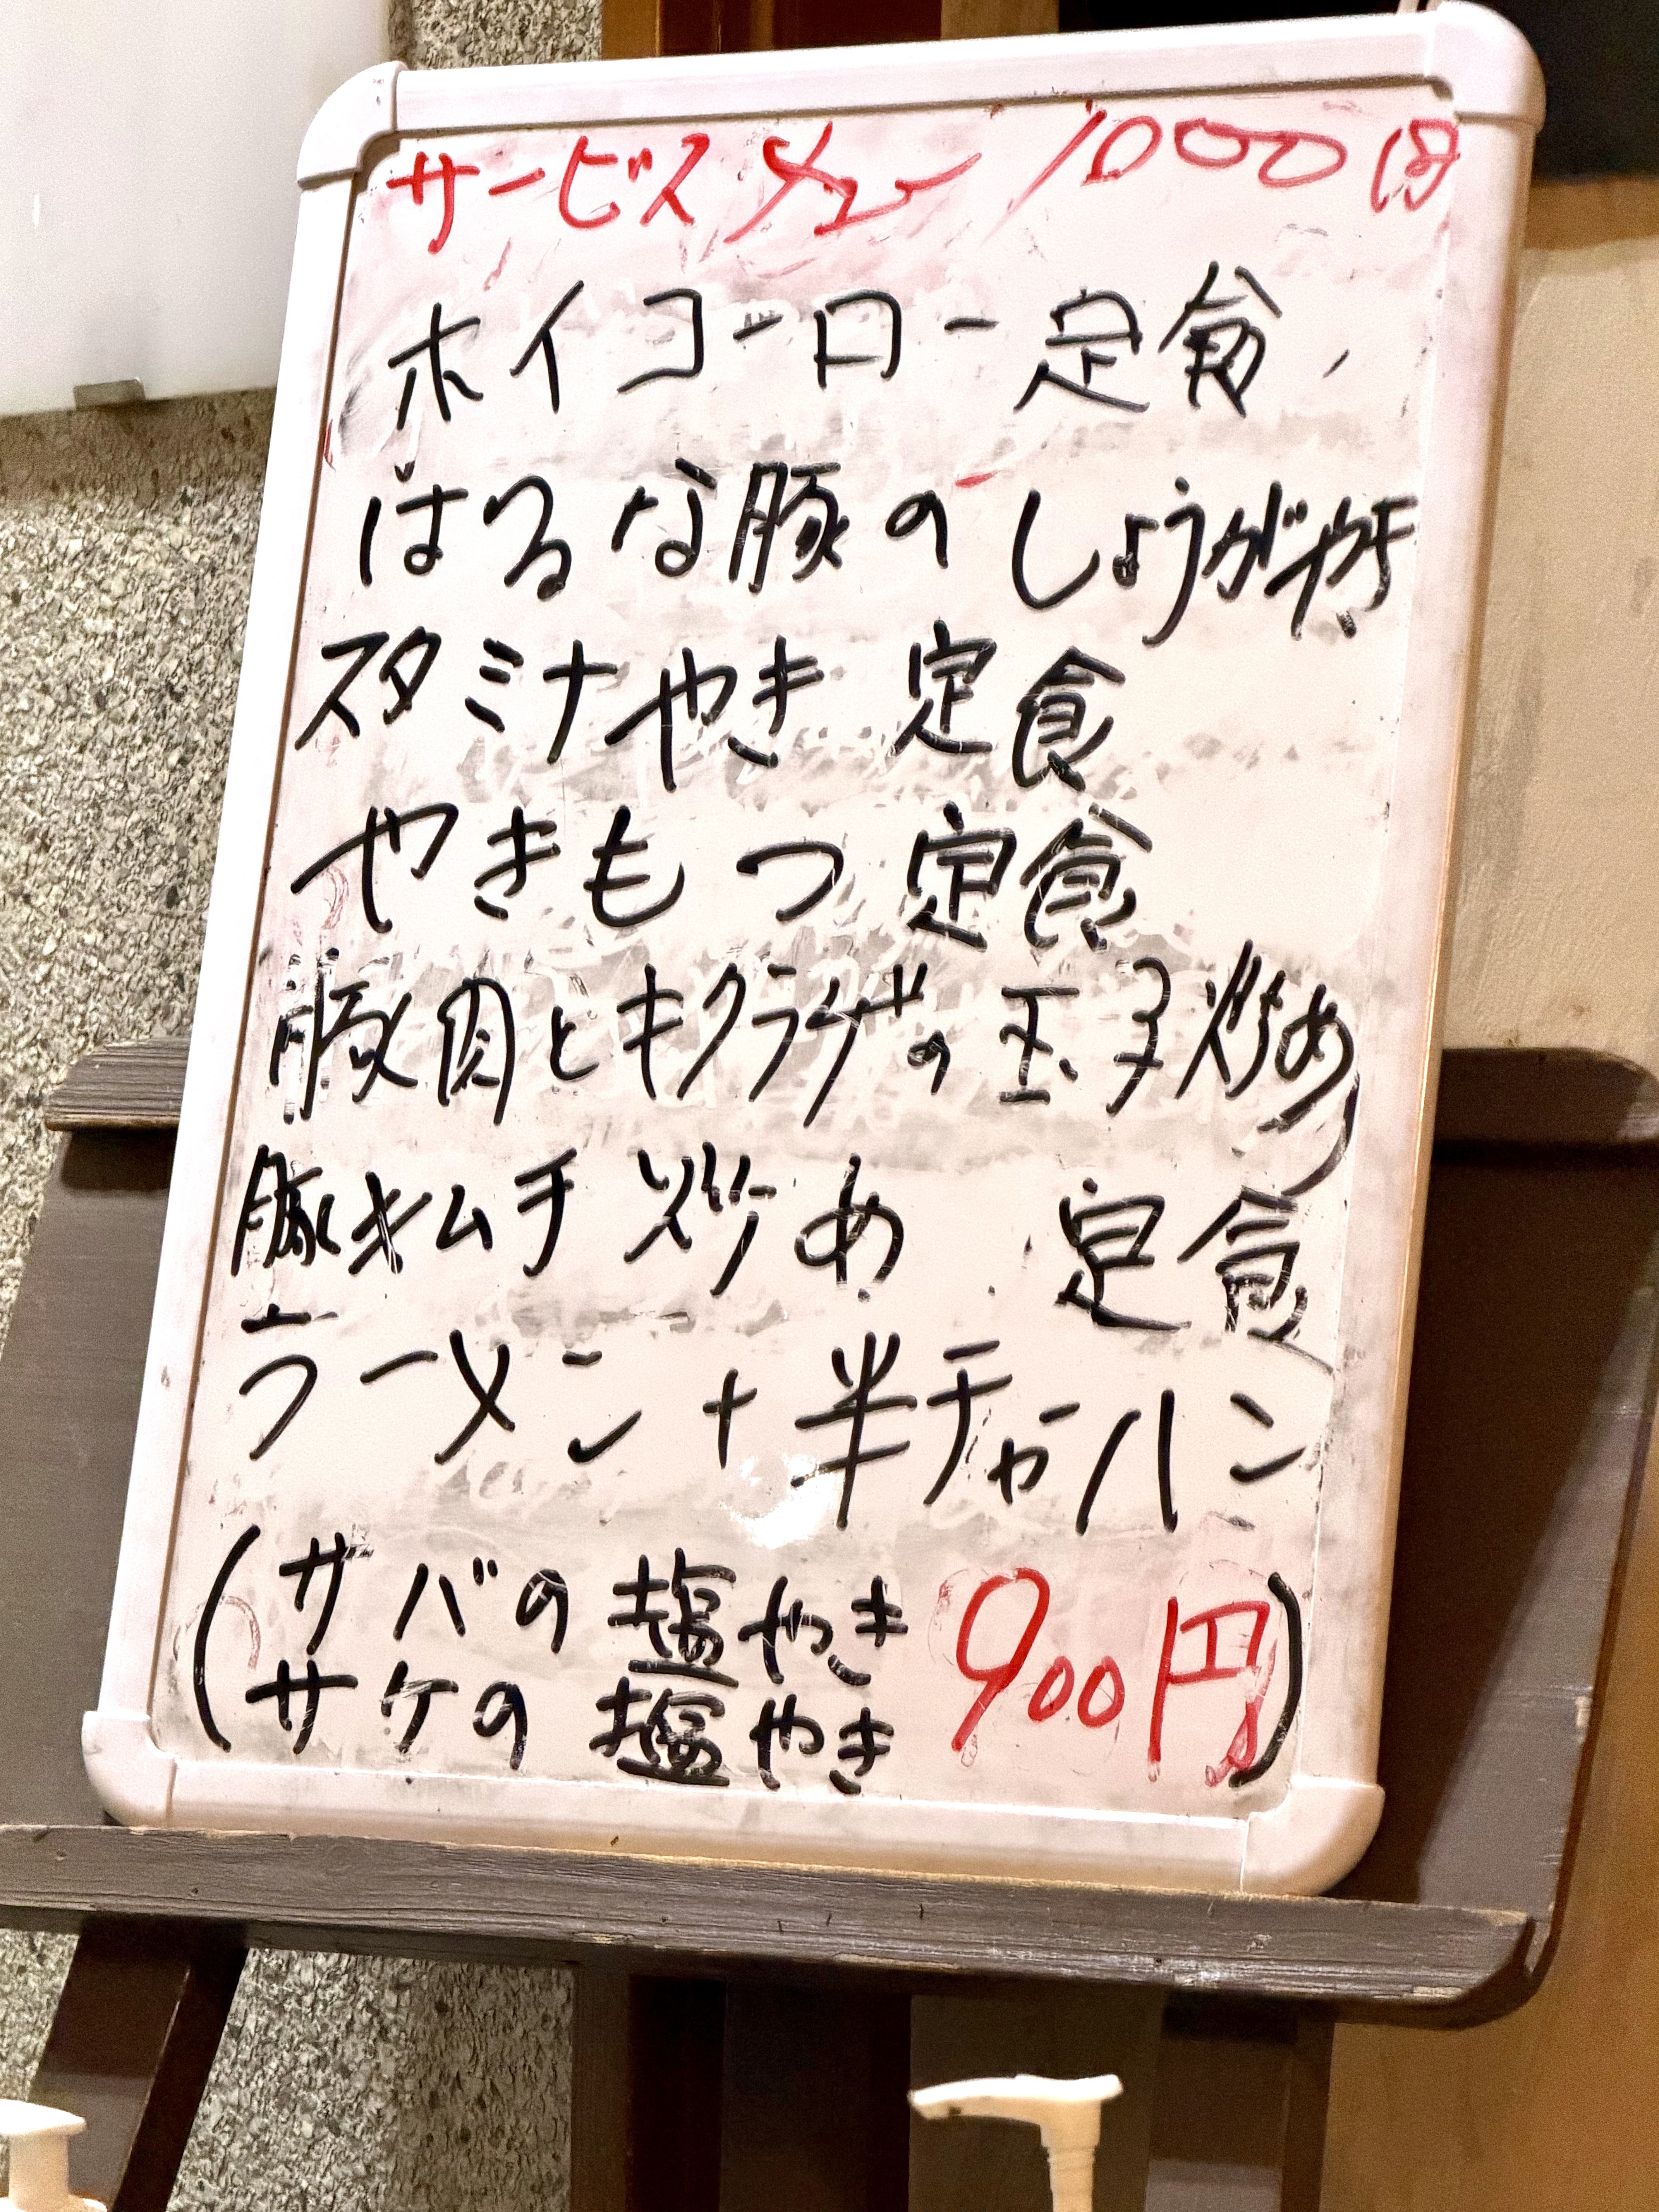 サービスメニュー 1000円
ホイコーロー定食
はるな豚のしょうが焼
スタミナやき定食
やきもつ定食
豚肉とキクラゲの玉子炒め
豚キムチ炒め 定食
ラーメン+半チャーハン
(サバの塩やき 900円)
サケの塩やき